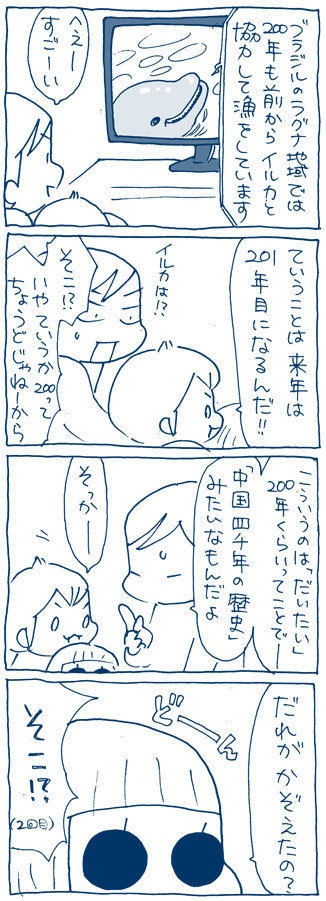 ブラジルのラグナ地域では
200年も前からイルカと
協力して漁をしています
へえー
すごーい
ていうことは来年は
201年目になるんだ!!
イルカは!?
そこ!?
いやていうか200って
ちょうどじゃねーから
こういうのは「だいたい」
200年くらいってことでー
「中国四千年の歴史」
みたいなもんだよ
そっかー
だれがかぞえたの?
どーん
そこ!?
(2回目)